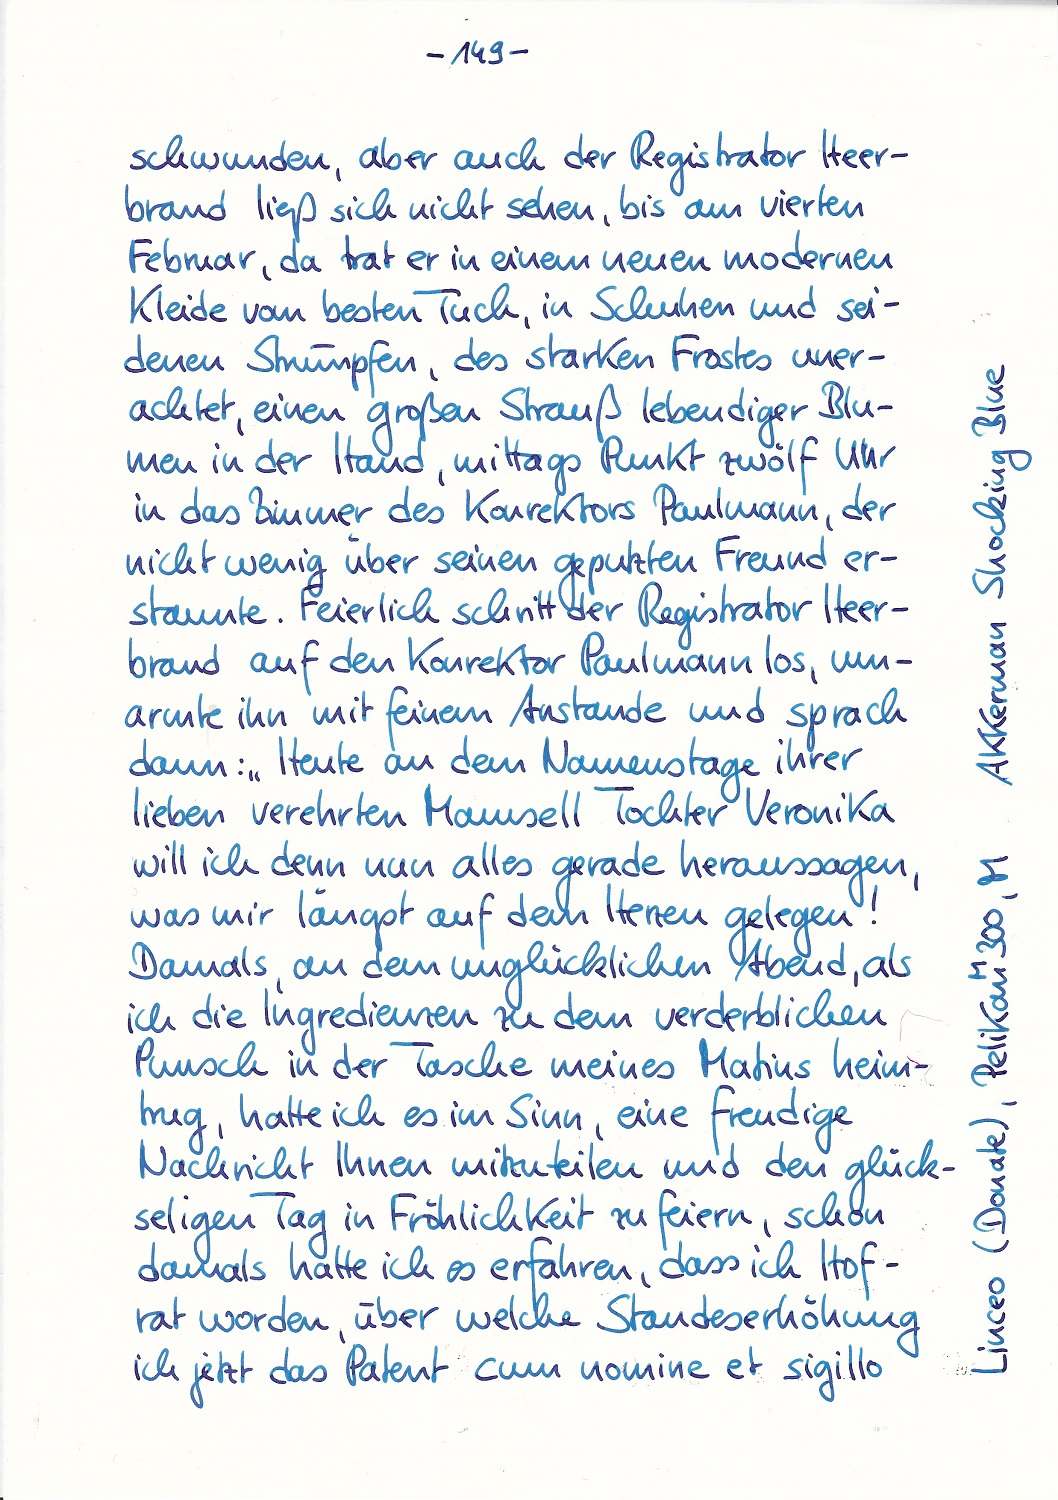 - 149 -
schwunden, aber auch der Registrator Heer-
brand ließ sich nicht sehen, bis am vierten
Februar, da trat er in einem neuen modernen
Kleide vom besten Tuch, in Schuhen und sei-
denen Strümpfen, des starken Frostes uner-
achtet, einen großen Strauß lebendiger Blu-
men in der Hand, mittags Punkt zwölf Uhr
in das Zimmer des Konrektors Paulmann, der
nicht wenig über seinen geputzten Freund er-
staunte. Feierlich schritt der Registrator Heer-
brand auf den Konrektor Paulmann los, um-
armte ihn mit feinem Anstande und sprach
dann: „Heute an dem Namenstage ihrer
lieben verehrten Mamsell Tochter Veronika
will ich denn nun alles gerade heraussagen,
was mir längst auf dem Herzen gelegen!
Damals, an dem unglücklichen Abend, als
ich die Ingredienzen zu dem verderblichen
Punsch in der Tasche meines Matins heim-
trug, hatte ich es im Sinn, eine freudige
Nachricht Ihnen mitzuteilen und den glück-
seligen Tag in Fröhlichkeit zu feiern, schon
damals hatte ich es erfahren, dass ich Hof-
rat worden, über welche Standeserhöhung
ich jetzt das Patent cum nomine et sigillo
Linceo (Donate), Pelikan M 300, M AKKerman Shocking Blue